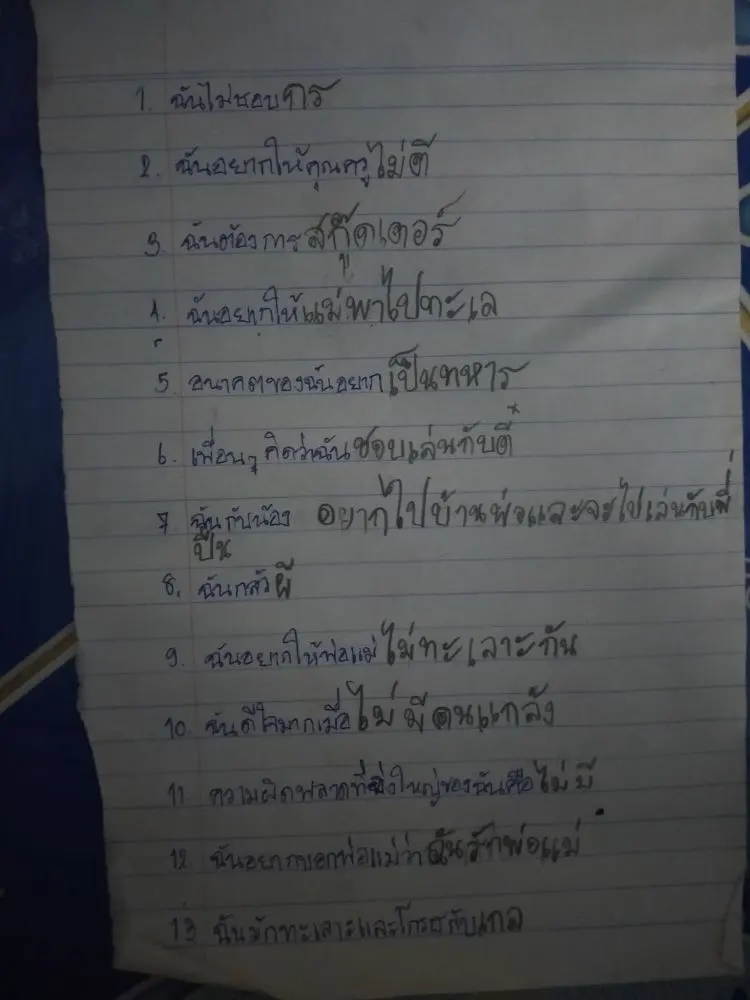 1. ฉันไม่ชอบกร
2. ฉันอยากให้คุณครูไม่ตี
3. ฉันต้องการสกู๊ตเตอร์
4. ฉันอยากให้แม่พาไปทะเล
5. อนาคตของฉันอยากเป็นทหาร
6. เพื่อนๆ คิดว่าฉันชอบเล่นกับตี๋
7. ฉันกับน้อง อยากไปบ้านพ่อและจะไปเล่นกับพี่
ปืน
8. ฉันกลัวผี
9. ฉันอยากให้พ่อแม่ไม่ทะเลาะกัน
10. ฉันดีใจมากเมื่อไม่มีคนแกล้ง
11. ความผิดพลาดที่ยิ่งใหญ่ของฉันคือไม่มี
12. ฉันอยากบอกพ่อแม่ว่าฉันรักพ่อแม่
13 ฉันมักทะเลาะและโกรธกับเกล